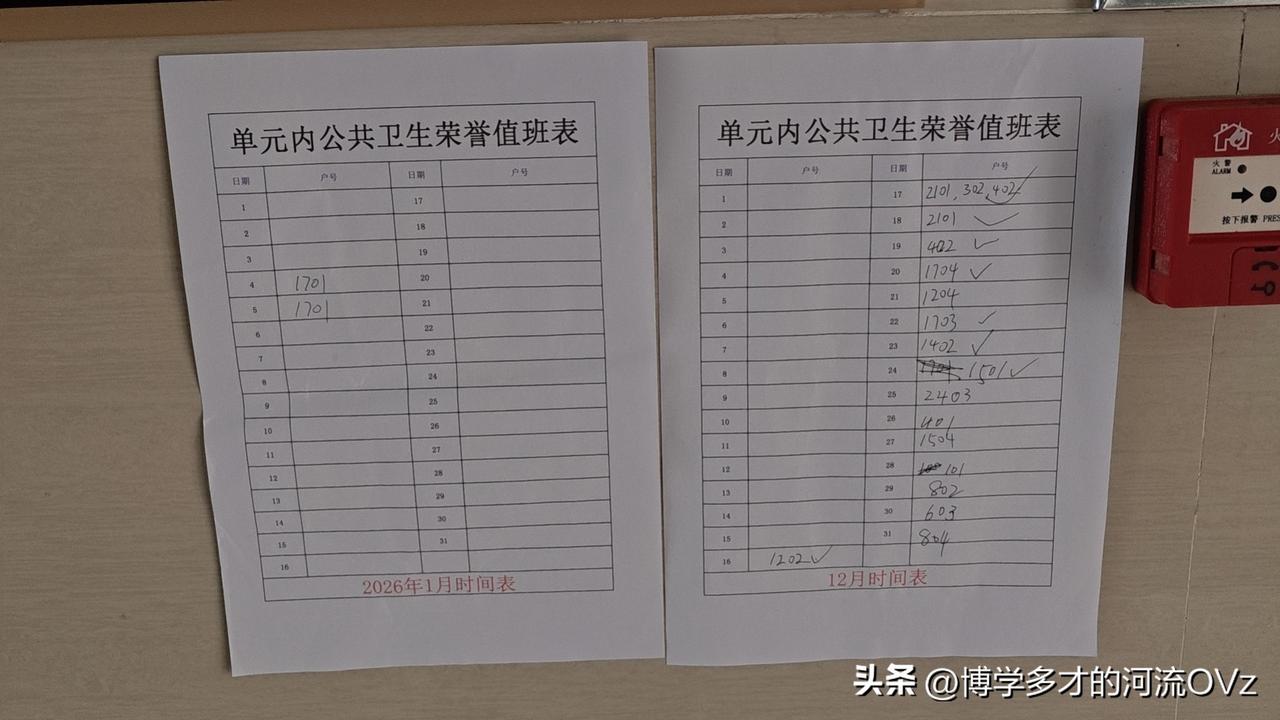 单元内公共卫生荣誉值班表
日期 户号 日期 户号
1 17
2 18
3 19
4 1701 20
5 1701 21
6 22
7 23
8 24
9 25
10 26
11 27
12 28
13 29
14 30
15 31
16
2026年1月时间表
单元内公共卫生荣誉值班表
日期 户号 日期 户号
1 17 2101,302,402✓
2 18 2101 ✓
3 19 402 ✓
4 20 1704 ✓
5 21 1204
6 22 1703 ✓
7 23 1402 ✓
8 24 1501✓
9 25 2403
10 26 401
11 27 1504
12 28 101
13 29 802
14 30 603
15 31 804
16 1202✓
12月时间表
火警
ALARM
按下报警 PRES
头条 @博学多才的河流OVz